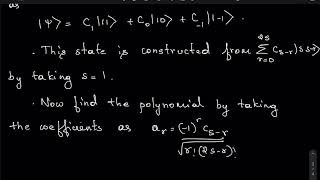 as
|ψ⟩ = C₁|1⟩ + C₀|0⟩ + C₋₁|-1⟩ .
. This state is constructed from ∑_{r=0}^{2s} C_{s-r}|s s-r⟩
by taking s = 1.
. Now find the polynomial by taking
the coefficients as a_r = (-1)^r C_{s-r}
√r!(2s-r)!